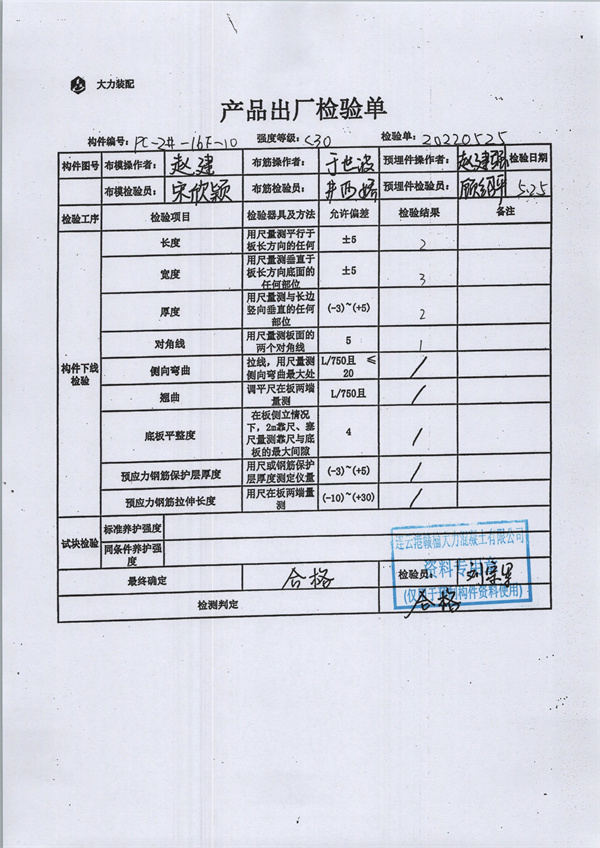 大力装配
产品出厂检验单
构件编号：PC-2#-16F-10 强度等级：C30 检验单：20220525
构件图号 布模操作者： 赵建 布筋操作者： 于世波 预埋件操作者： 赵建强 检验日期
布模检验员： 宋欣颖 布筋检验员： 预埋件检验员： 5.25
检验工序 检验项目 检验器具及方法 允许偏差 检验结果 备注
构件下线检验
长度 用尺量测平行于板长方向的任何 ±5 2
宽度 用尺量测垂直于板长方向底面的任何部位 ±5 3
厚度 用尺量测与长边竖向垂直的任何部位 (-3)~(+5) 2
对角线 用尺量测板面的两个对角线 5 1
侧向弯曲 拉线，用尺量测侧向弯曲最大处 L/750且 ≤20 /
翘曲 调平尺在板两端量测 L/750且 /
底板平整度 在板侧立情况下，2m靠尺、塞尺量测靠尺与底板的最大间隙 4 /
预应力钢筋保护层厚度 用尺或钢筋保护层厚度测定仪量 (-3)~(+5) /
预应力钢筋拉伸长度 用尺在板两端量测 (-10)~(+30) /
试块检验 标准养护强度
同条件养护强度
连云港赣榆大力混凝土有限公司
资料专用章
(仅用于预制构件资料使用)
最终确定 合格 检验员：
检测判定 合格